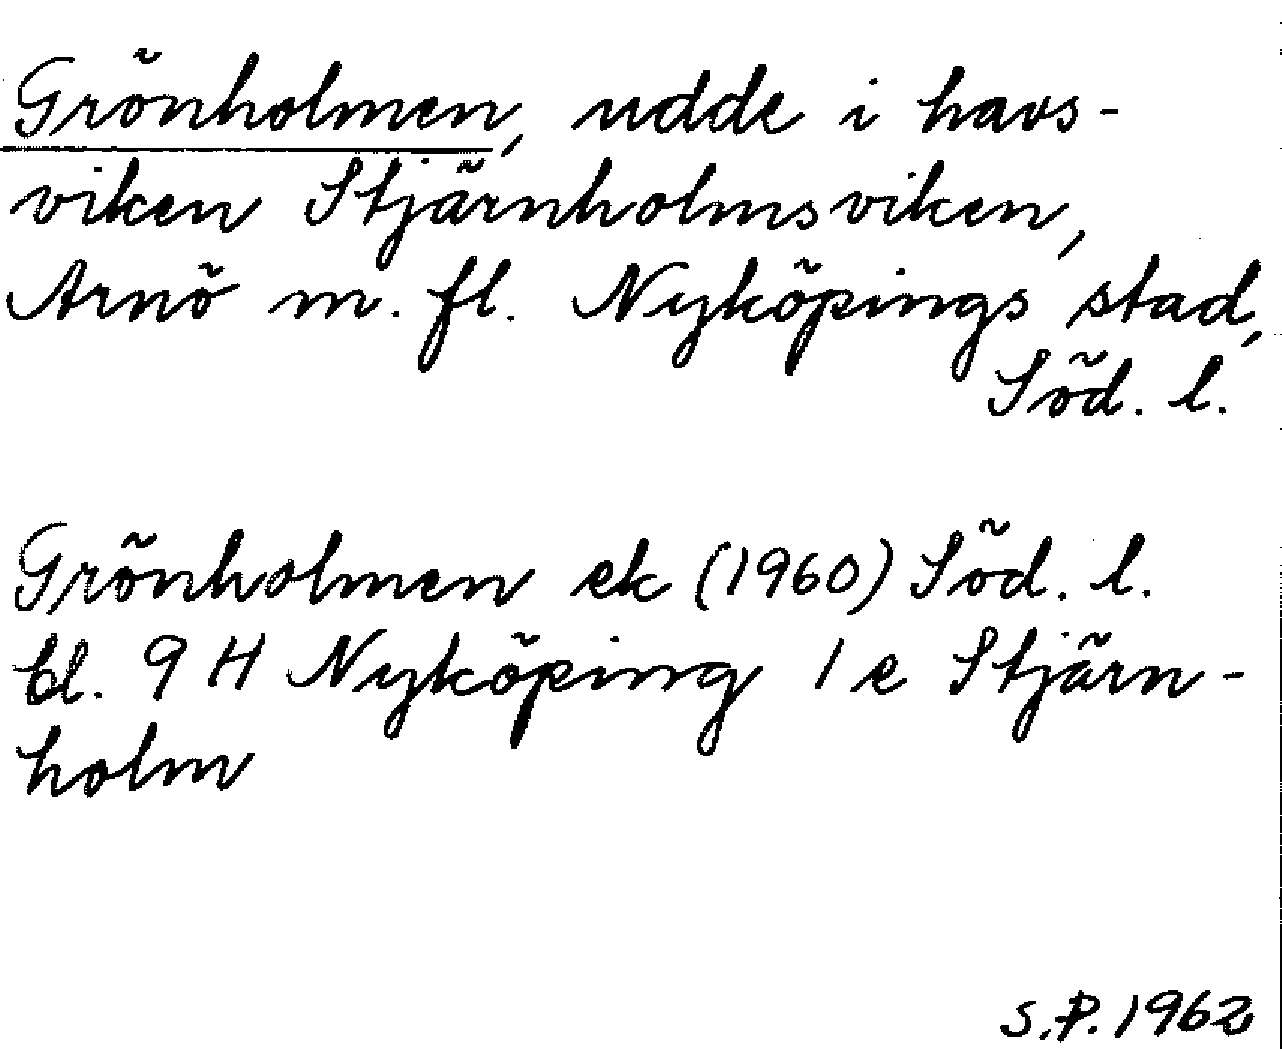 Grönholmen, udde i havs-
viken Stjärnholmsviken,
Arnö m. fl. Nyköpings stad,
Söd. l.
Grönholmen ek (1960) Söd. l.
bl. 9 H Nyköping 1 e Stjärn-
holm
S.P. 1962